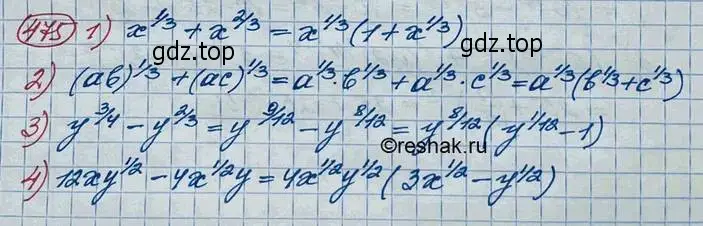 475 1) x^1/3 + x^2/3 = x^1/3 (1 + x^1/3)
gdz.top gdz.top
2) (ab)^1/3 + (ac)^1/3 = a^1/3 · b^1/3 + a^1/3 · c^1/3 = a^1/3 (b^1/3 + c^1/3)
3) y^3/4 − y^2/3 = y^9/12 − y^8/12 = y^8/12 (y^1/12 − 1)
©reshak.ru
4) 12xy^1/2 − 4x^1/2 y = 4x^1/2 y^1/2 (3x^1/2 − y^1/2)